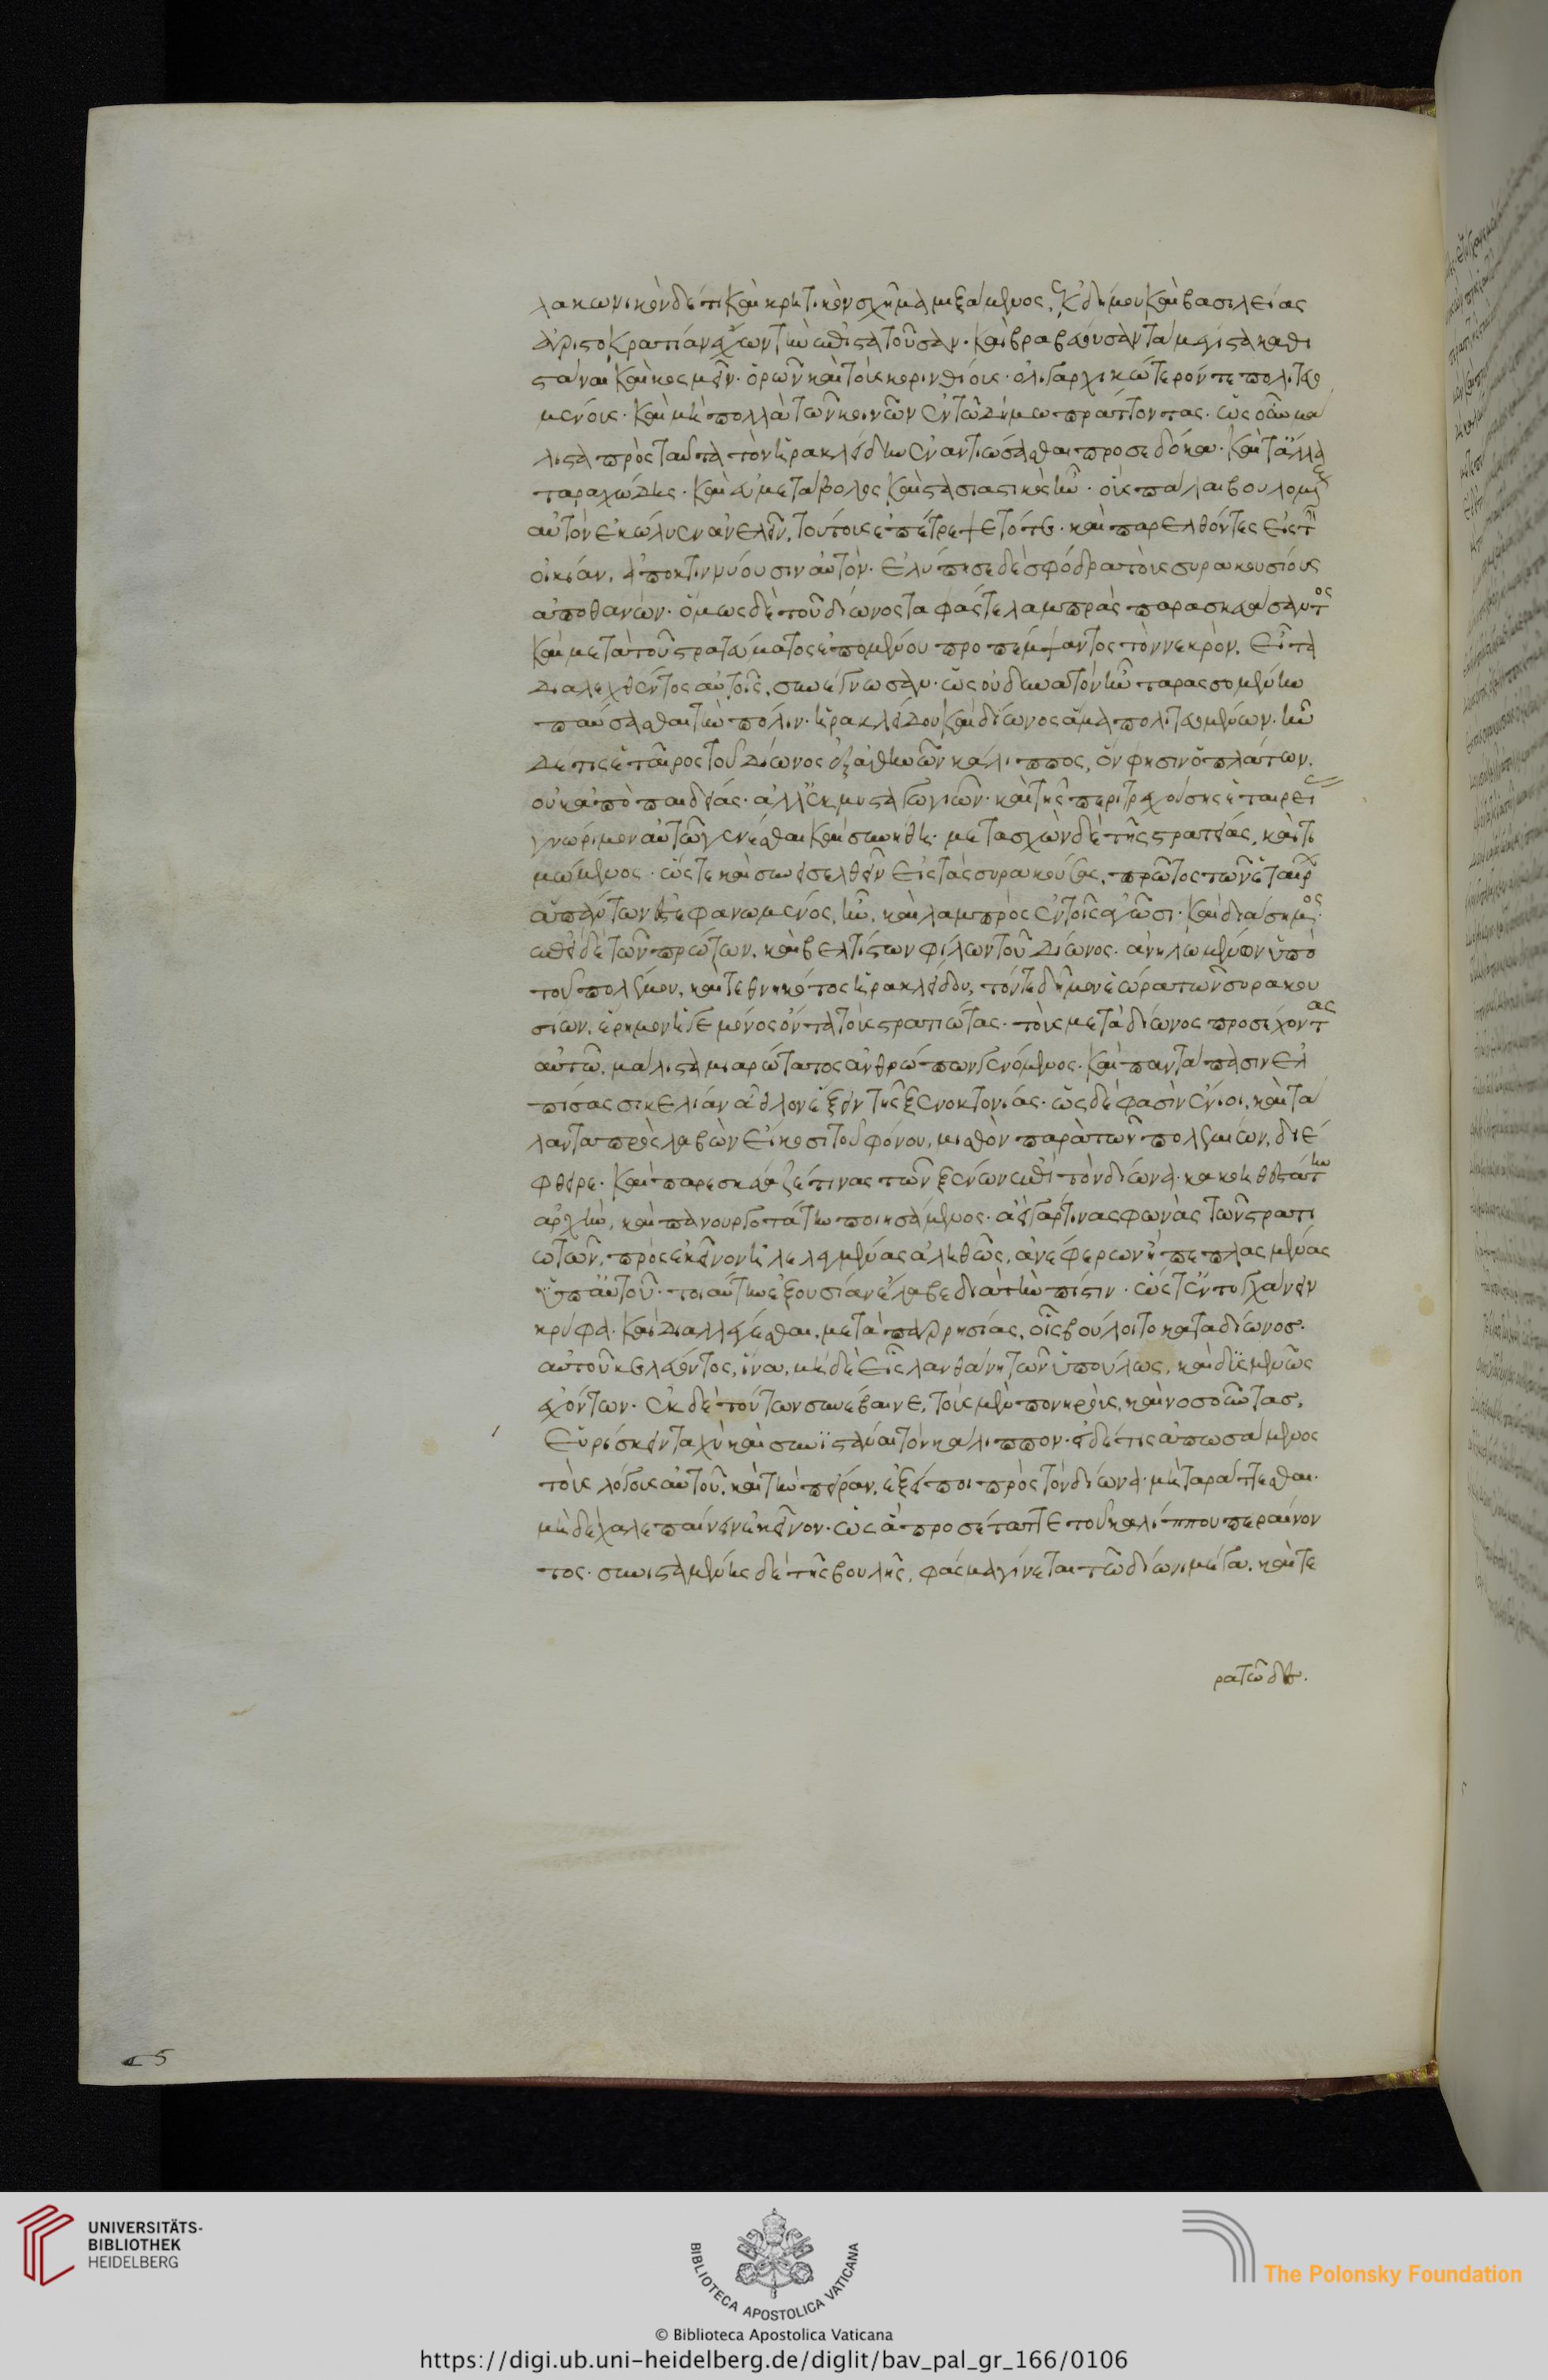 λακωνικὸν δέ τι καὶ κρητικὸν σχῆμα μιξάμενος, ἐκ δήμου καὶ βασιλείας
ἀριστοκρατίαν ἔχων τὴν ἐπιστατοῦσαν· καὶ βραβεύουσαν τὰ μέγιστα καθι
στάναι καὶ κοσμεῖν· ὁρῶν καὶ τοῖς κορινθίοις· ὀλιγαρχικώτερόν τε πολιτευο
μένοις· καὶ μὴ πολλὰ τῶν κοινῶν ἐν τῶ δήμω πράττοντας· ὡς οὖν μά
λιστα πρὸς ταῦτα τὸν ἡρακλείδην ἐναντιώσασθαι προσεδόκα· καὶ τἄλλα
ταραχώδης· καὶ εὐμετάβολος καὶ στασιαστικὸς ἦν· οἷς πάλαι βουλομένοις
αὐτὸν ἐκώλυεν ἀνελεῖν, τούτοις ἐπέτρεψε τότε· καὶ παρελθόντες εἰς τὴν
οἰκίαν, ἀποκτιννύουσιν αὐτόν· ἐλύπησε δὲ σφόδρα τοὺς συρακουσίους
ἀποθανών· ὅμως δὲ τοῦ δίωνος ταφάς τε λαμπρὰς παρασκευάσαντος
καὶ μετὰ τοῦ στρατεύματος ἑπομένου προπέμψαντος τὸν νεκρὸν, εἶτα
διαλεχθέντος αὐτοῖς, συνέγνωσαν· ὡς οὐ δυνατὸν ἦν ταρασσομένην
παύσασθαι τὴν πόλιν· ἡρακλείδου καὶ δίωνος ἅμα πολιτευομένων· ἦν
δέ τις ἑταῖρος τοῦ δίωνος ἐξ ἀθηνῶν κάλιππος, ὅν φησιν ὁ πλάτων,
οὐκ ἀπὸ παιδείας· ἀλλ' ἐκ μυσταγωγιῶν· καὶ τῆς περιτρεχούσης ἑταιρείας
γνώριμον αὐτῶ γενέσθαι καὶ συνήθη· μετασχὼν δὲ τῆς στρατείας, καὶ τι
μώμενος· ὥστε καὶ συνεισελθεῖν εἰς τὰς συρακούσας, πρῶτος τῶν ἑταίρων
ἁπάντων ἐστεφανωμένος, ἦν, καὶ λαμπρὸς ἐν τοῖς ἀγῶσι· καὶ διάσημος·
ἐπεὶ δὲ τῶν πρώτων, καὶ βελτίστων φίλων τοῦ δίωνος· ἀνηλωμένων ὑπὸ
τοῦ πολέμου, καὶ τεθνηκότος ἡρακλείδου, τόν τε δῆμον ἑώρα τῶν συρακου
σίων, ἔρημον ἡγεμόνος ὄντα τοὺς στρατιώτας· τοὺς μετὰ δίωνος προσέχοντας
αὐτῶ, μάλιστα μιαρώτατος ἀνθρώπων γενόμενος· καὶ παντάπασιν ἐλ
πίσας σικελίαν ἆθλον ἕξειν τῆς ξενοκτονίας· ὡς δέ φασὶν ἔνιοι, καὶ τά
λαντα προσλαβὼν εἴκοσι τοῦ φόνου, μισθὸν παρὰ τῶν πολεμίων, διέ
φθειρε· καὶ παρεσκεύαζέ τινας τῶν ξένων ἐπὶ τὸν δίωνα· κακοηθεστάτην
ἀρχὴν, καὶ πανουργοτάτην ποιησάμενος· ἀεὶ γάρ τινας φωνὰς τῶν στρατι
ωτῶν, πρὸς ἐκεῖνον ἢ λελεγμένας ἀληθῶς, ἀναφέρων ἢ πεπλασμένας
ὑπ' αὐτοῦ· τοιαύτην ἐξουσίαν ἔλαβε διὰ τὴν πίστιν· ὥστ' ἐντυγχάνειν
κρύφα· καὶ διαλέγεσθαι, μετὰ παρρησίας, οἷς βούλοιτο κατὰ δίωνοσ·
αὐτοῦ κελεύοντος, ἵνα, μηδὲ εἷς λανθάνη τῶν ὑπούλως, καὶ δυσμενῶς
ἐχόντων· ἐκ δὲ τούτων συνέβαινε, τοὺς μὲν πονηροὺς, καὶ νοσοῦντασ,
εὑρίσκειν ταχὺ καὶ συνϊστάναι τὸν κάλιππον· εἰ δέ τις ἀπωσάμενος
τοὺς λόγους αὐτοῦ, καὶ τὴν πεῖραν, ἐξείποι πρὸς τὸν δίωνα· μὴ ταράττεσθαι·
μηδὲ χαλεπαίνειν ἐκεῖνον· ὡς ἃ προσέταττε τοῦ καλίππου περαίνον
τος· συνισταμένης δὲ τῆς βουλῆς, φάσμα γίνεται τῶ δίωνι μέγα, καὶ τε
ρατῶδες.
65
UNIVERSITÄTS-
BIBLIOTHEK
HEIDELBERG
BIBLIOTECA APOSTOLICA VATICANA
The Polonsky Foundation
© Biblioteca Apostolica Vaticana
https://digi.ub.uni-heidelberg.de/diglit/bav_pal_gr_166/0106